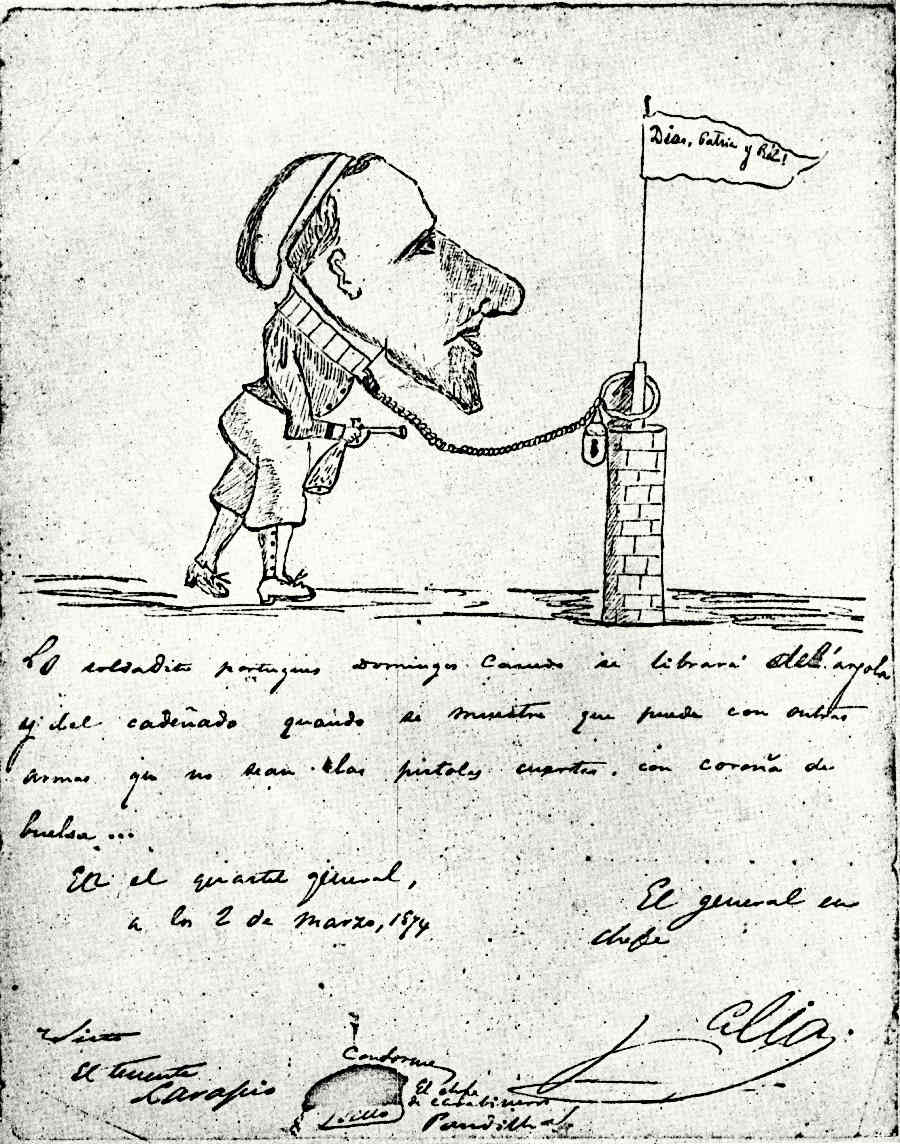 Dios, Patria y Réi!
Lo soldadito portugues Domingos Casudo se librará del'argola
y del cadeñado quando se muestre que puede con outras
armas que no sean las pistolas cuertas, con coroña de
buelsa...
En el quartel general,
a los 2 de Marzo, 1874
El general en
chefe
Elia.
Visto
El tenente
Larapio
Conforme
Sello
El chefe
de carabineros
Pandilha